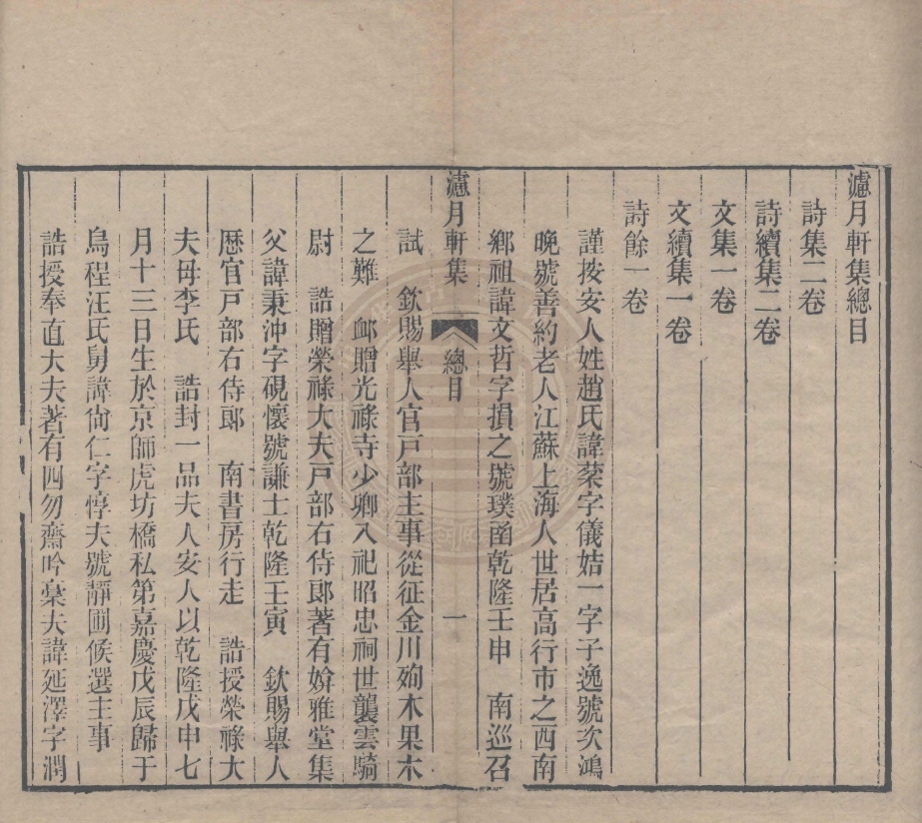 濾月軒集總目
詩集二卷
詩續集二卷
文集一卷
文續集一卷
詩餘一卷
謹按安人姓趙氏諱棻字儀姞一字子逸號次鴻
晚號善約老人江蘇上海人世居高行市之西南
鄉祖諱文哲字損之號璞函乾隆壬申 南巡召
濾月軒集 總目 一
試 欽賜舉人官戶部主事從征金川殉木果木
之難 卹贈光祿寺少卿入祀昭忠祠世襲雲騎
尉 誥贈榮祿大夫戶部右侍郎著有媕雅堂集
父諱秉沖字硯懷號謙士乾隆壬寅 欽賜舉人
歷官戶部右侍郎 南書房行走 誥授榮祿大
夫母李氏 誥封一品夫人安人以乾隆戊申七
月十三日生於京師虎坊橋私第嘉慶戊辰歸于
烏程汪氏舅諱尙仁字惇夫號靜圃候選主事
誥授奉直大夫著有四勿齋吟稾夫諱延澤字潤